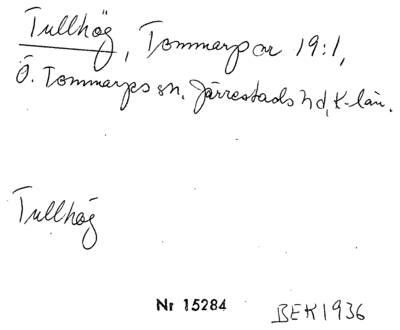 Tullhög, Tommarp or 19:1,
Ö. Tommarps sn. Järrestads hd, K-län.
Tullhög
Nr 15284 BEK 1936